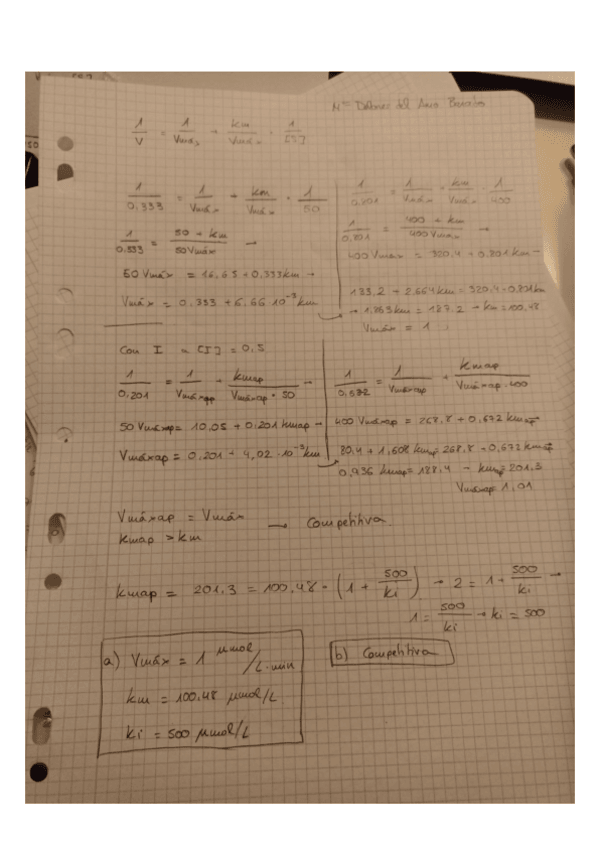 Mª Dolores del Amo
1/V = 1/Vmáx + km/Vmáx · 1/[S]
1/0,333 = 1/Vmáx + km/Vmáx · 1/50
1/0.333 = 50 + km/50Vmáx →
50 Vmáx = 16,65 + 0,333km →
Vmáx = 0,333 + 6,66 10⁻³ km
1/0,801 = 1/Vmáx + km/Vmáx · 1/400
1/0,801 = 400 + km/400Vmáx →
400 Vmáx = 320,4 + 0,801 km →
133,2 + 2,664km = 320,4 + 0,801km
→ 1,863km = 187,2 → km = 100,48
Vmáx = 1
Con I → [I] = 0,5
1/0,201 = 1/Vmáxap + kmap/Vmáxap · 50 →
50 Vmáxap = 10,05 + 0,201 kmap →
Vmáxap = 0,201 + 4,02·10⁻³ km
1/0,672 = 1/Vmáxap + kmap/Vmáxap · 400
400 Vmáxap = 268,8 + 0,672 kmap
80,4 + 1,608 kmap = 268,8 + 0,672 kmap
0,936 kmap = 188,4 → kmap = 201,3
Vmáxap = 1,01
Vmáxap = Vmáx
kmap > km
→ Competitiva
kmap = 201,3 = 100,48 · (1 + 500/ki) → 2 = 1 + 500/ki →
1 = 500/ki → ki = 500
a) Vmáx = 1 µmol/L·min
km = 100,48 µmol/L
ki = 500 µmol/L
b) Competitiva